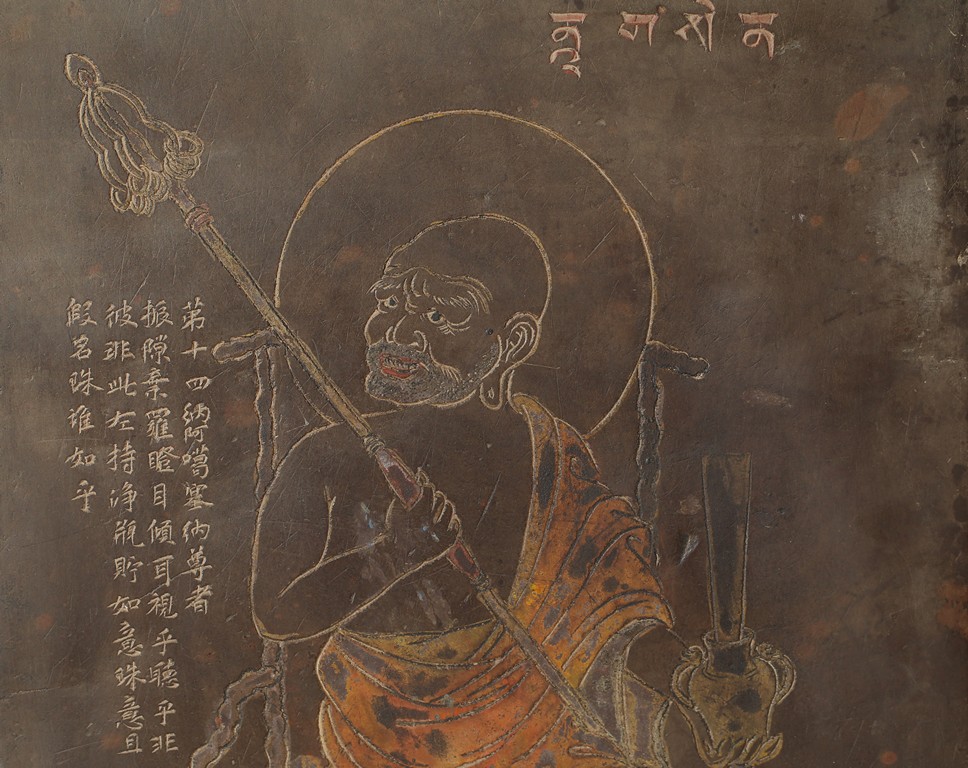 第十四納阿噶塞納尊者
振隙棄羅瞪目傾耳視乎聽乎非
彼非此左持淨瓶貯如意珠意且
假名珠誰如乎